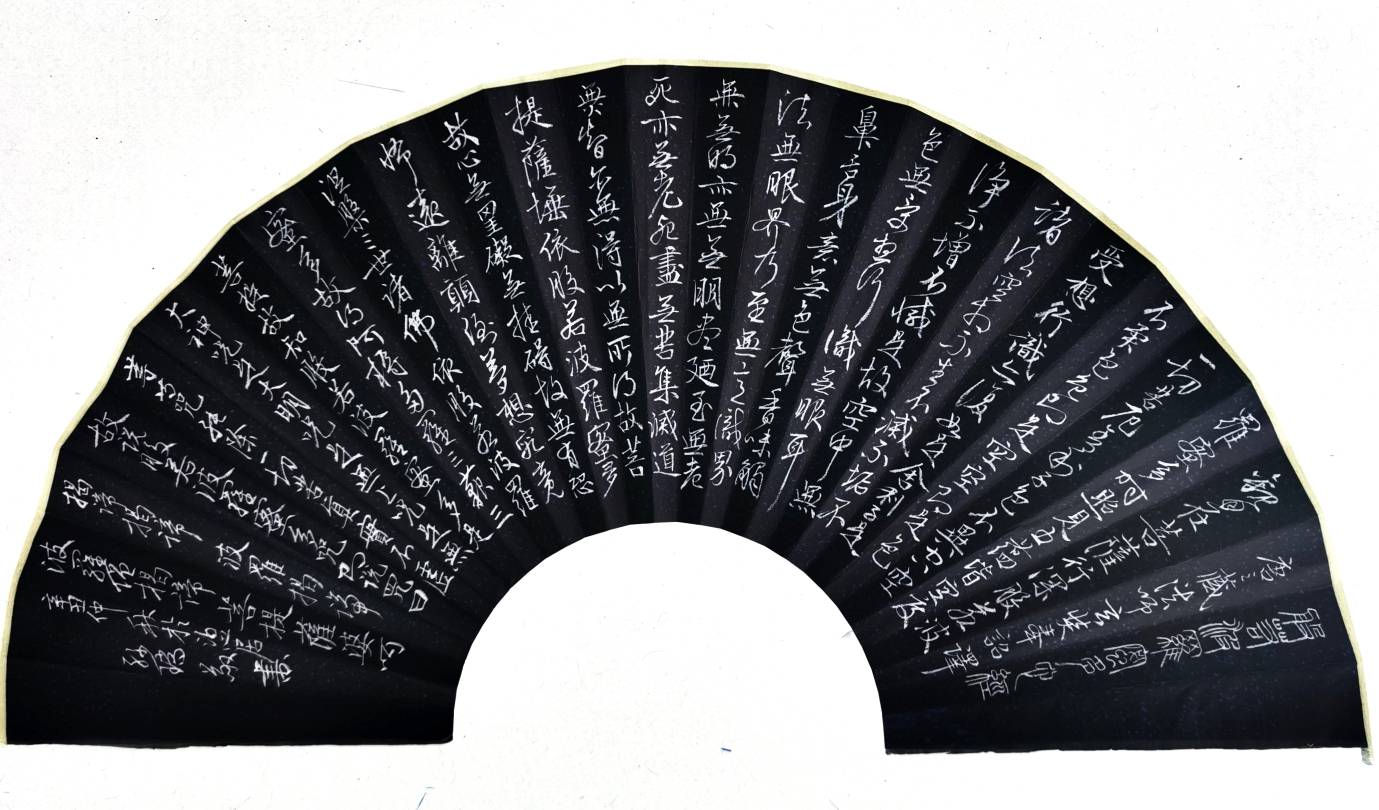 般若波羅蜜多心經
唐三藏法師玄奘奉詔譯
觀自在菩薩行深般若波
羅蜜多時照見五蘊皆空度
一切苦厄舍利子色不異空空
不異色色即是空空即是色
受想行識亦復如是舍利子是
諸法空相不生不滅不垢不
淨不增不減是故空中無
色無受想行識無眼耳
鼻舌身意無色聲香味觸
法無眼界乃至無意識界
無無明亦無無明盡廼至無老
死亦無老死盡無苦集滅道
無智亦無得以無所得故菩
提薩埵依般若波羅蜜多
故心無罣礙無罣礙故無有恐
怖遠離顛倒夢想究竟
涅槃三世諸佛依般若波羅
蜜多故得阿耨多羅三藐三
菩提故知般若波羅蜜多是
大神咒是大明咒是無上咒是無
等等咒能除一切苦真實不虛
故說般若波羅蜜多咒即說咒曰
揭諦揭諦波羅揭諦
波羅僧揭諦菩提薩婆訶
辛丑仲秋於
書